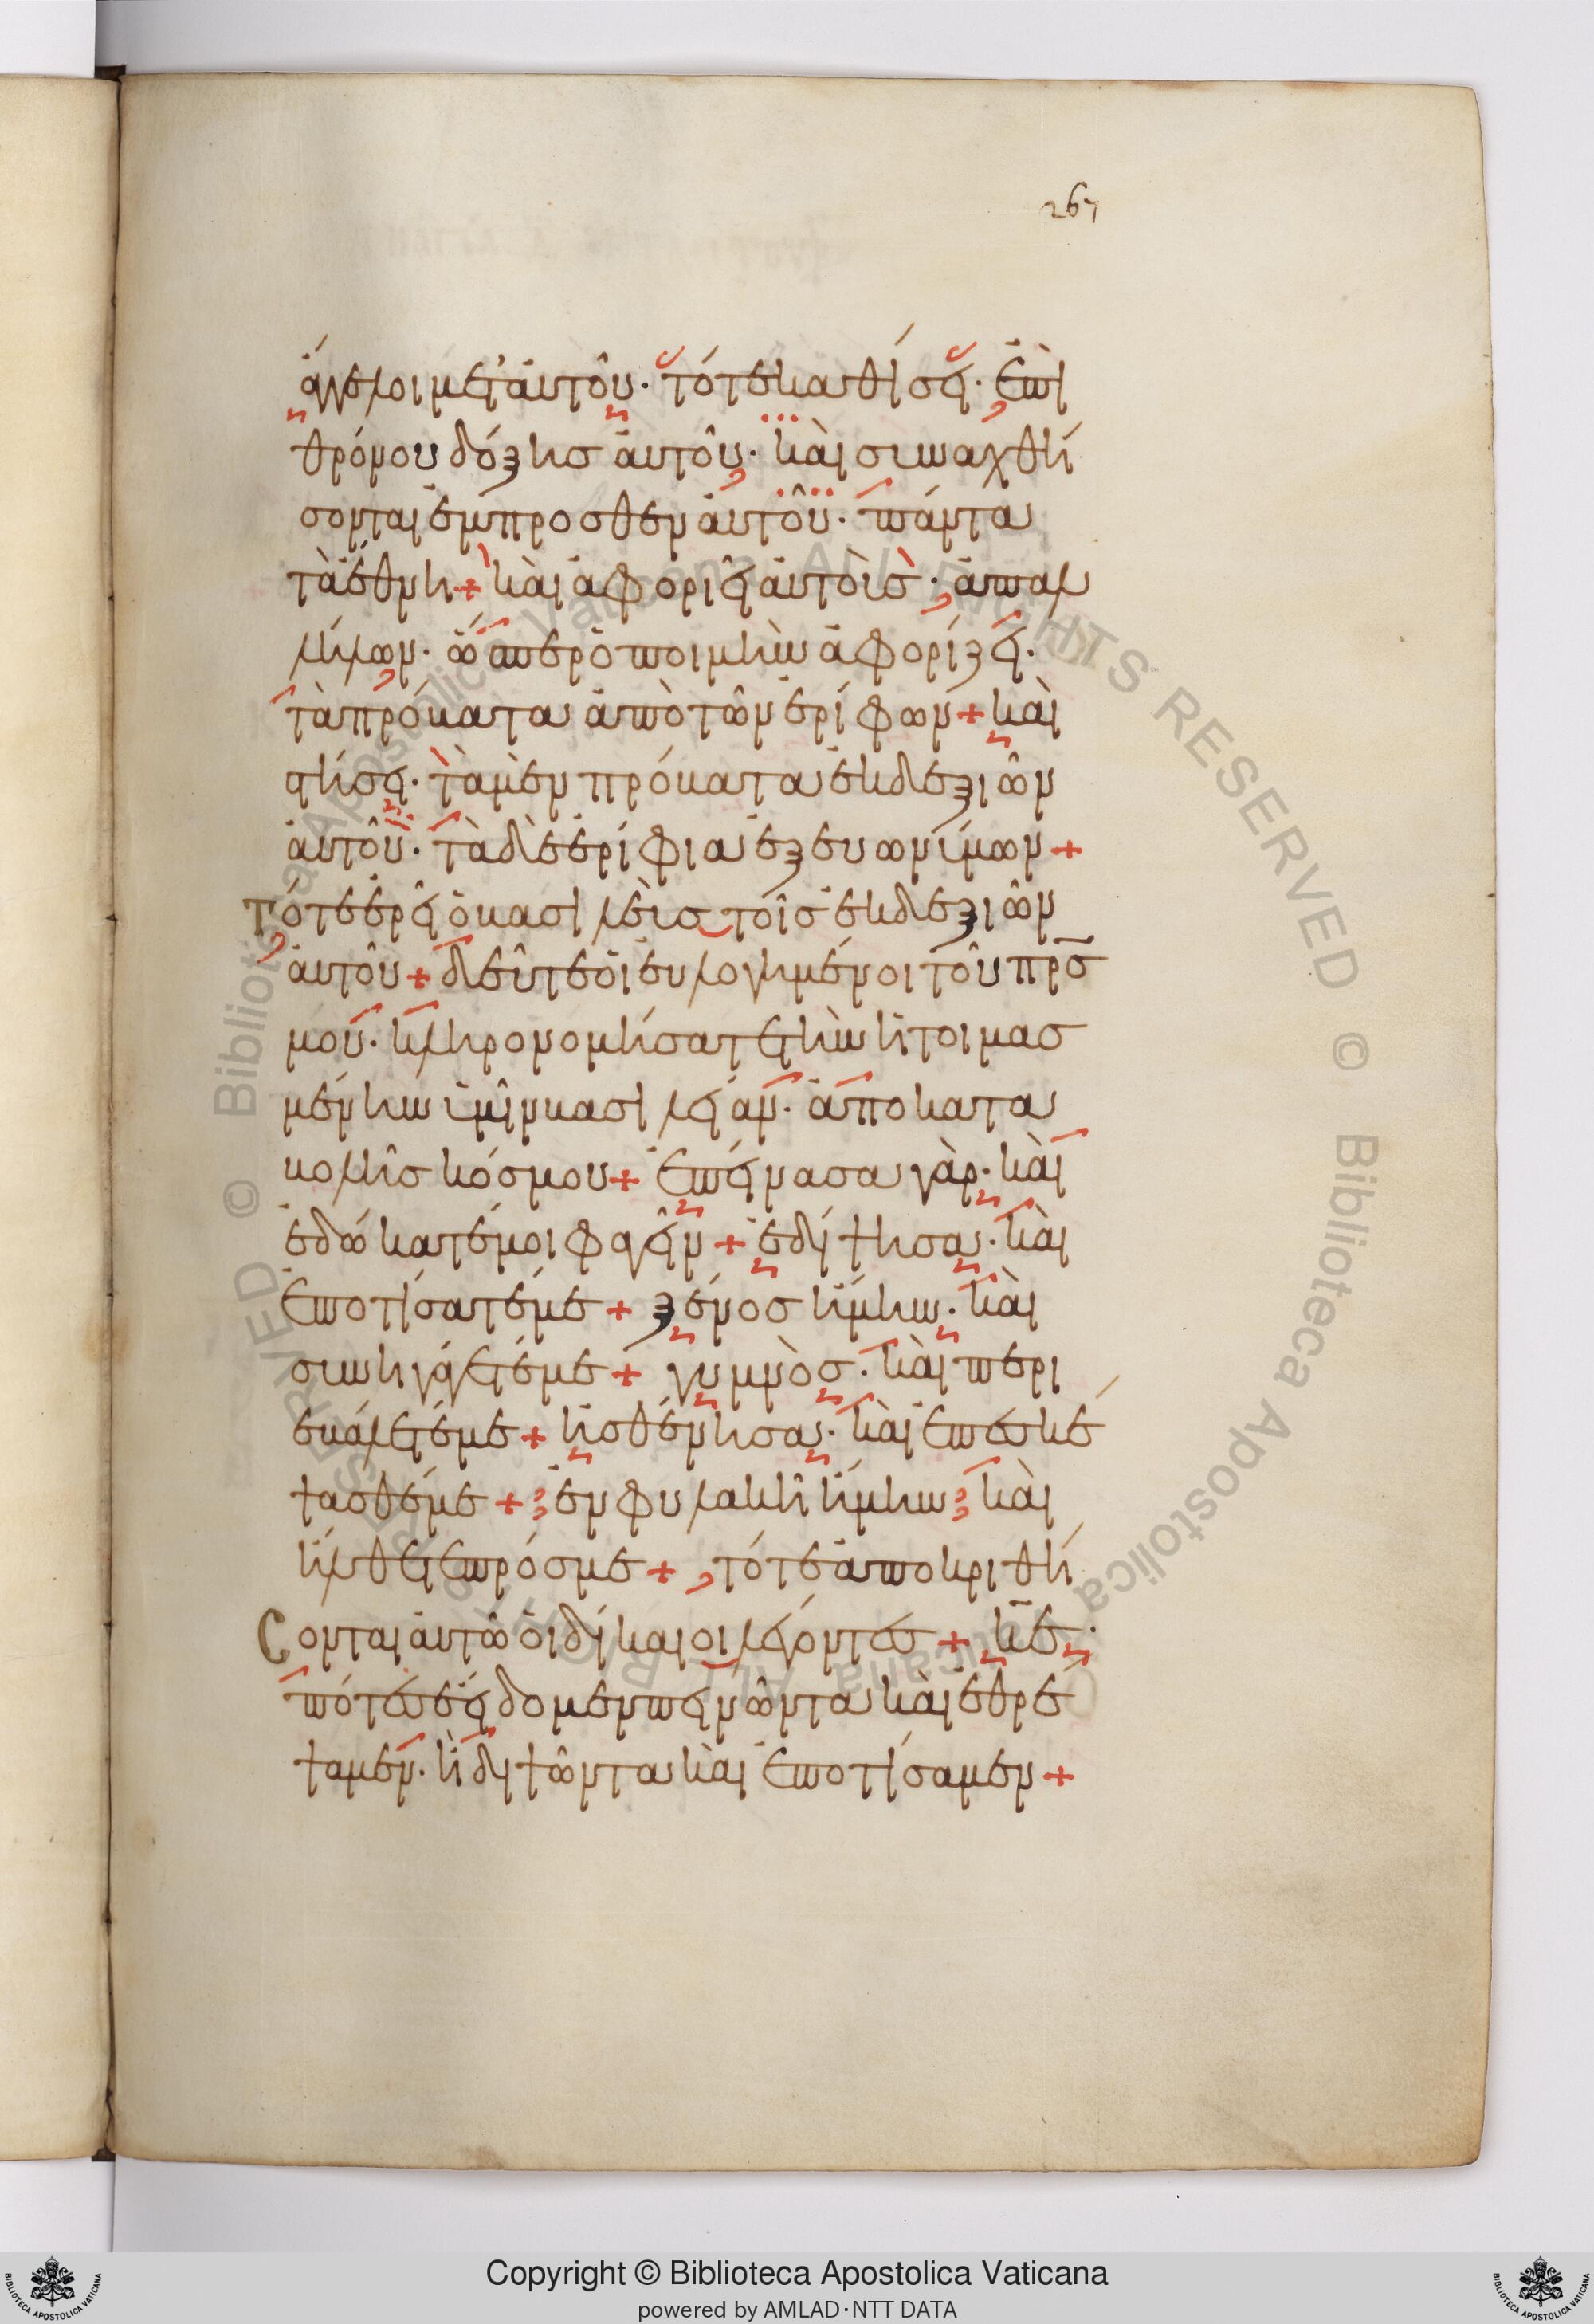 267
ἄγγελοι μετ' αὐτοῦ· τότε καθίσει· ἐπὶ
θρόνου δόξης αὐτοῦ· καὶ συναχθή
σονται ἔμπροσθεν αὐτοῦ· πάντα
τὰ ἔθνη + καὶ ἀφοριεῖ αὐτοὺς· ἀπ' ἀλ
λήλων· ὥσπερ ὁ ποιμὴν ἀφορίζει·
τὰ πρόβατα ἀπὸ τῶν ἐρίφων + καὶ
στήσει· τὰ μὲν πρόβατα ἐκ δεξιῶν
αὐτοῦ· τὰ δὲ ἐρίφια ἐξ εὐωνύμων +
Τότε ἐρεῖ ὁ βασιλεὺς τοῖς ἐκ δεξιῶν
αὐτοῦ + δεῦτε οἱ εὐλογημένοι τοῦ πρς
μου· κληρονομήσατε τὴν ἡτοιμασ
μένην ὑμῖν βασιλείαν· ἀπὸ κατα
βολῆς κόσμου + ἐπείνασα γὰρ· καὶ
ἐδώκατέ μοι φαγεῖν + ἐδίψησα· καὶ
ἐποτίσατέ με + ξένος ἤμην· καὶ
συνηγάγετέ με + γυμνὸς· καὶ περι
εβάλετέ με + ἠσθένησα· καὶ ἐπεσκέ
ψασθέ με + ἐν φυλακῇ ἤμην καὶ
ἤλθετε πρός με + τότε ἀποκριθή
Σονται αὐτῷ οἱ δίκαιοι λέγοντες + κε·
πότε σὲ εἴδομεν πεινῶντα καὶ ἐθρέ
ψαμεν· ἢ διψῶντα καὶ ἐποτίσαμεν +
Copyright © Biblioteca Apostolica Vaticana
powered by AMLAD·NTT DATA